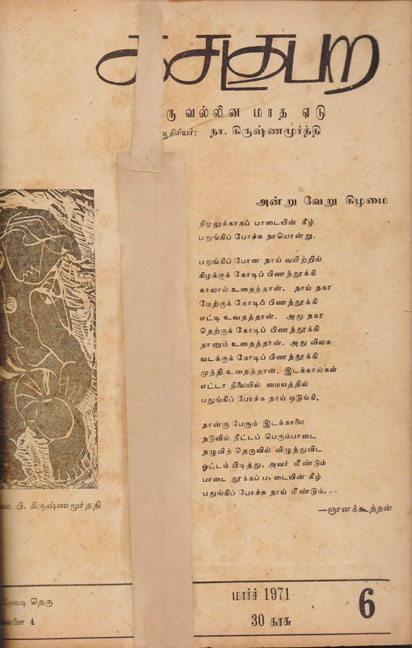 கசடதபற
ரு வல்லின மாத ஏடு
சிரியர்: நா. கிருஷ்ணமூர்த்தி
அன்று வேறு கிழமை
நிழலுக்காகப் பாடையின் கீழ்
பதுங்கிப் போச்சு நாயொன்று.
பதுங்கிப் போன நாய் வயிற்றில்
கிழக்குக் கோடிப் பிணந்தூக்கி
காலால் உதைத்தான். நாய் நகர
மேற்குக் கோடிப் பிணந்தூக்கி
எட்டி உதைத்தான். அது நகர
தெற்குக் கோடிப் பிணந்தூக்கி
தானும் உதைத்தான். அது விலக
வடக்குக் கோடிப் பிணந்தூக்கி
முந்தி உதைத்தான். இடக்கால்கள்
எட்டா நிலையில் மையத்தில்
பதுங்கிப் போச்சு நாய் ஒடுங்கி.
நான்கு பேரும் இடக்காலை
நடுவில் நீட்டப் பெரும்பாடை
நழுவித் தெருவில் விழுந்துவிட
ஓட்டம் பிடித்து, அவர் மீண்டும்
பாடை தூக்கப் பாடையின் கீழ்
பதுங்கிப் போச்சு நாய் மீண்டும்...
—ஞானக்கூத்தன்
பி. கிருஷ்ணமூர்த்தி
தெரு
4
மார்ச் 1971
30 காசு
6